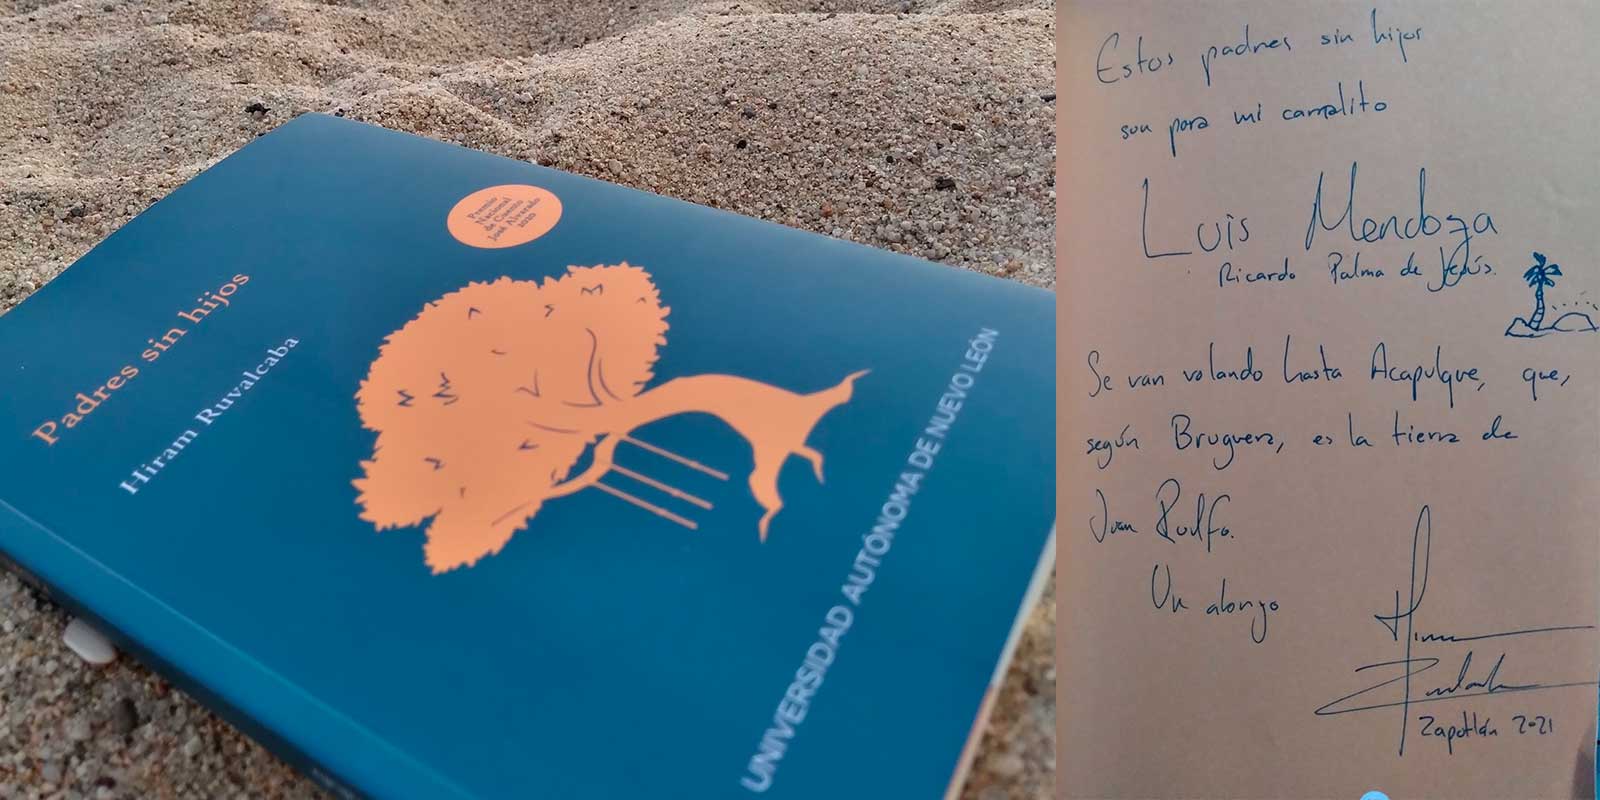 Premio
Nacional
de Cuento
José Alvarado
2020
Padres sin hijos
Hiram Ruvalcaba
UNIVERSIDAD AUTÓNOMA DE NUEVO LEÓN
Estos padres sin hijos
son para mi carnalito
Luis Mendoza
Ricardo Palma de Jesús.
Se van volando hasta Acapulque, que,
según Bruguera, es la tierra de
Juan Rulfo.
Un abrazo
Zapotlán 2021